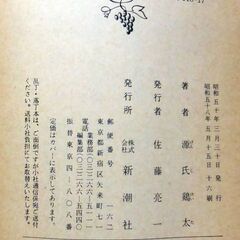 昭和五十年三月三十日　発行
昭和五十八年五月十五日　十六刷
著者　源氏鶏太
発行者　佐藤亮一
発行所　株式会社　新潮社
郵便番号　一六二
東京都新宿区矢来町七一
電話　業務部〇三(二六六)五一一一
編集部〇三(二六六)五四四〇
振替東京四―八〇八番
定価はカバーに表示してあります。
乱丁・落丁本は、ご面倒ですが小社通信係宛ご送付
ください。送料小社負担にてお取替えいたします。